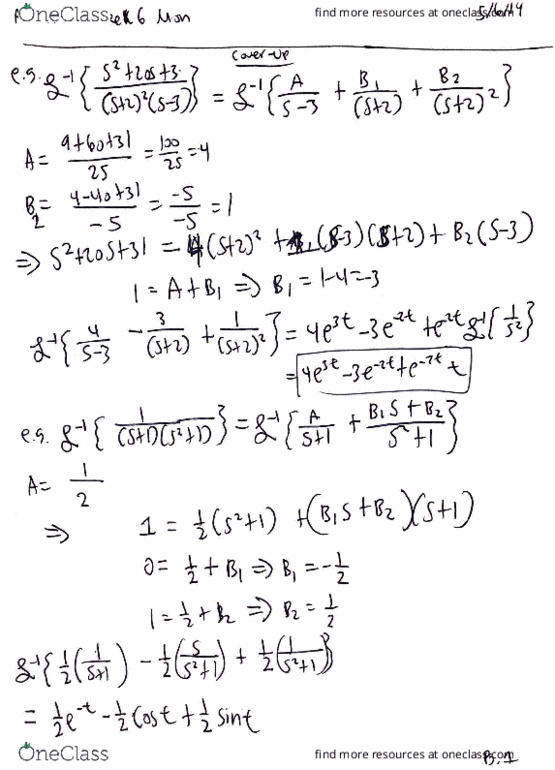 OneClass week 6 Mon find more resources at oneclass.com
cover-up
e.g. ℒ⁻¹{ (s²+20s+31) / ((s+2)²(s-3)) } = ℒ⁻¹{ A/(s-3) + B₁/(s+2) + B₂/(s+2)² }
A = (9+60+31)/25 = 100/25 = 4
B₂ = (4-40+31)/-5 = -5/-5 = 1
⇒ s²+20s+31 = 4(s+2)² + B₁(s-3)(s+2) + B₂(s-3)
1 = A+B₁ ⇒ B₁ = 1-4 = -3
ℒ⁻¹{ 4/(s-3) - 3/(s+2) + 1/(s+2)² } = 4e³ᵗ - 3e⁻²ᵗ + e⁻²ᵗ ℒ⁻¹{ 1/s² }
= 4e³ᵗ - 3e⁻²ᵗ + e⁻²ᵗ t
e.g. ℒ⁻¹{ 1/((s+1)(s²+1)) } = ℒ⁻¹{ A/(s+1) + (B₁s+B₂)/(s²+1) }
A = 1/2
⇒ 1 = ½(s²+1) + (B₁s+B₂)(s+1)
0 = ½ + B₁ ⇒ B₁ = -½
1 = ½ + B₂ ⇒ B₂ = ½
ℒ⁻¹{ ½(1/(s+1)) - ½(s/(s²+1)) + ½(1/(s²+1)) }
= ½e⁻ᵗ - ½cost + ½sint
OneClass find more resources at oneclass.com
P. 1